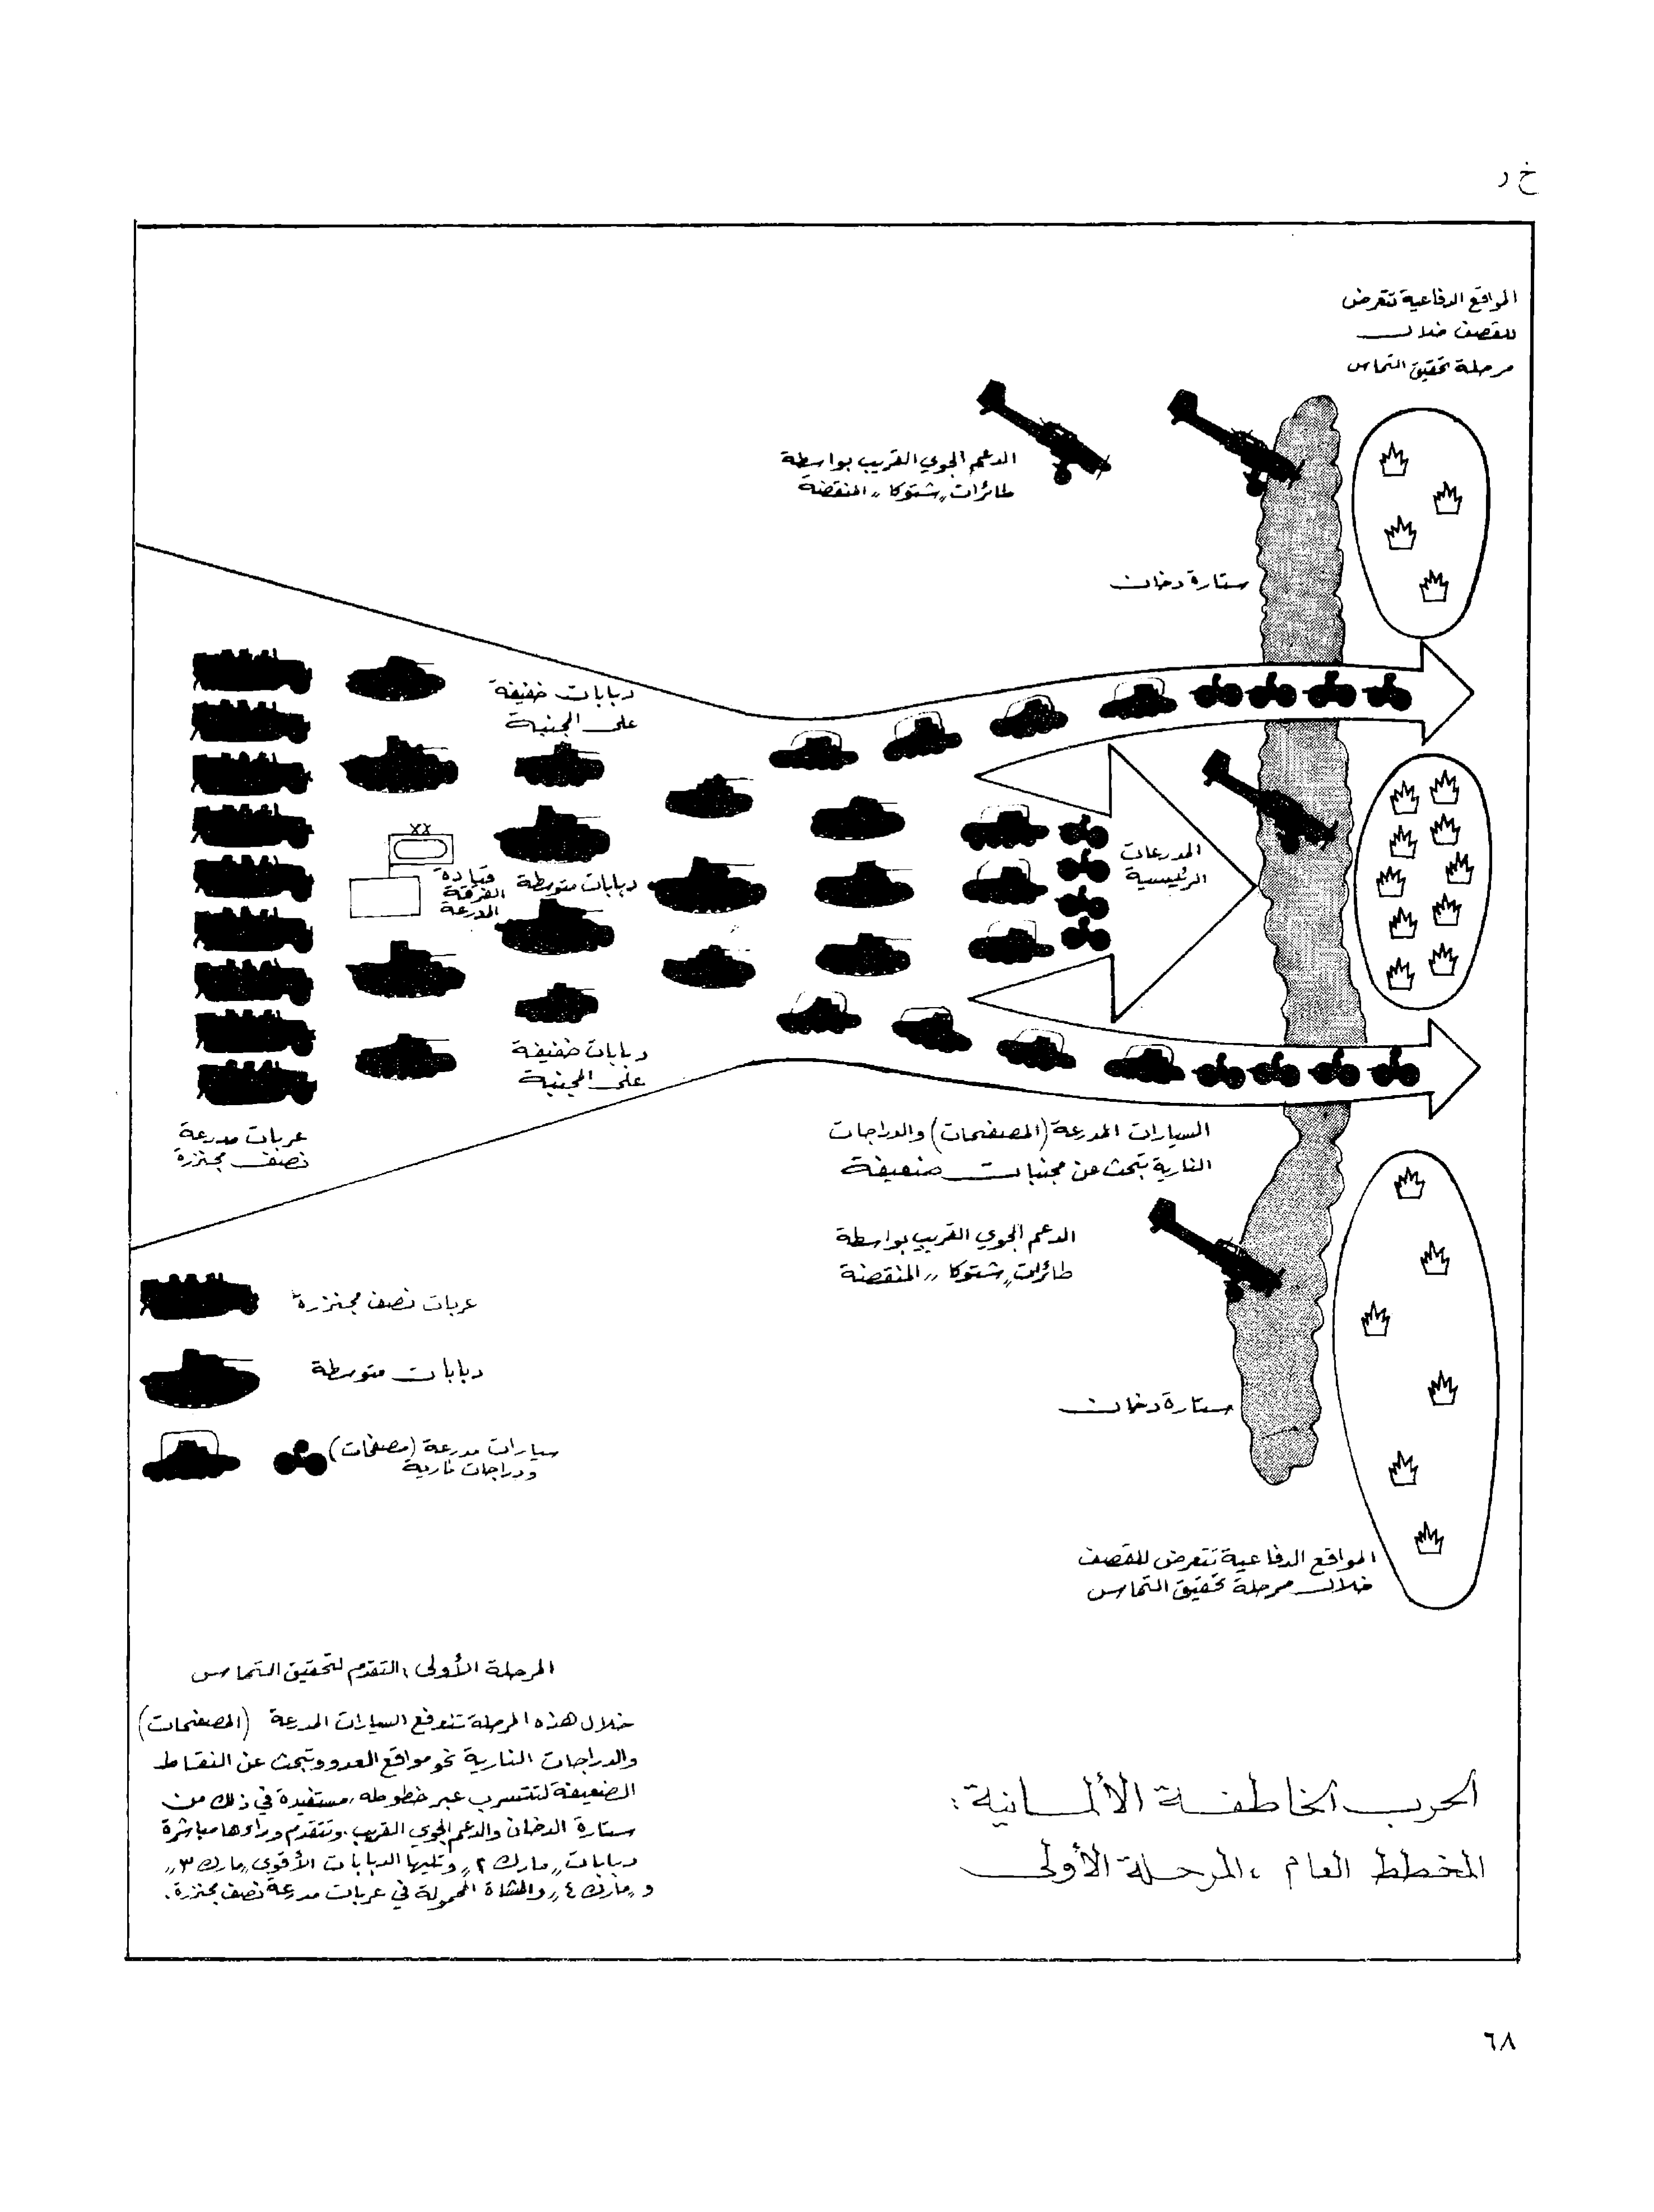 خ ر
المواقع الدفاعية تتعرض
للقصف خلال
مرحلة تحقيق التماس
الدعم الجوي القريب بواسطة
طائرات „شتوكا„ المنقضة
ستارة دخان
دبابات خفيفة
على المجنبة
المدرعات
الرئيسية
قيادة
الفرقة
المدرعة
XX
دبابات متوسطة
دبابات خفيفة
على المجنبة
عربات مدرعة
نصف مجنزرة
السيارات المدرعة (المصفحات) والدراجات
النارية تبحث عن مجنبات ضعيفة
الدعم الجوي القريب بواسطة
طائرات „شتوكا„ المنقضة
عربات نصف مجنزرة
دبابات متوسطة
سيارات مدرعة (مصفحات)
ودراجات نارية
ستارة دخان
المواقع الدفاعية تتعرض للقصف
خلال مرحلة تحقيق التماس
المرحلة الأولى، التقدم لتحقيق التماس
خلال هذه المرحلة تندفع السيارات المدرعة (المصفحات)
والدراجات النارية نحو مواقع العدو وتبحث عن النقاط
الضعيفة لتتسرب عبر خطوطه، مستفيدة في ذلك من
ستارة الدخان والدعم الجوي القريب. وتتقدم وراءها مباشرة
دبابات „مارك ٢„ وتليها الدبابات الأقوى „مارك ٣„
و „مارك ٤„ والمشاة المحمولة في عربات مدرعة نصف مجنزرة.
الحرب الخاطفة الألمانية:
المخطط العام، المرحلة الأولى
٦٨